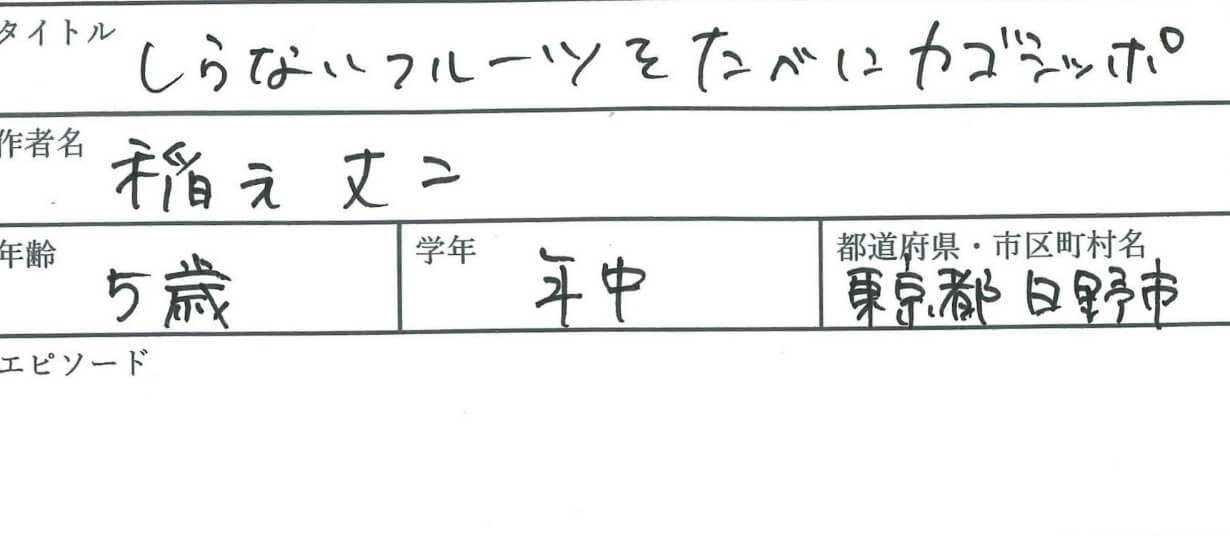 タイトル しらないフルーツをたべにカゴシッポ
作者名 稲元 丈二
年齢 5歳 学年 年中 都道府県・市区町村名 東京都 日野市
エピソード